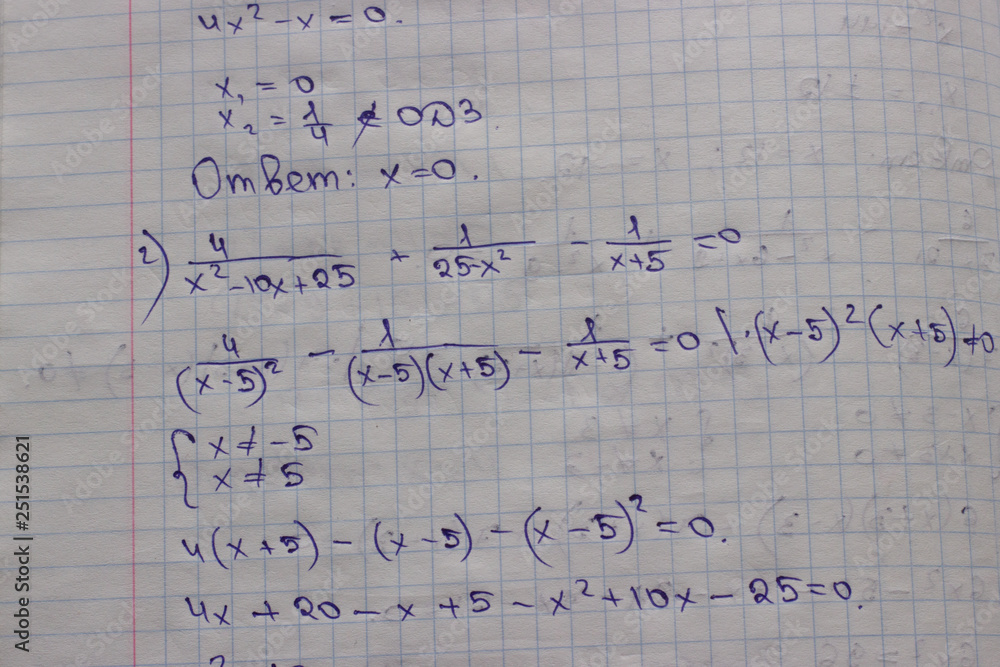 4x² - x = 0.
x₁ = 0
x₂ = 1/4 ∉ ОДЗ
Ответ: x = 0.
2) 4/(x² - 10x + 25) + 1/(25 - x²) - 1/(x + 5) = 0.
4/(x - 5)² - 1/((x - 5)(x + 5)) - 1/(x + 5) = 0 |·(x - 5)²(x + 5) ≠ 0
{ x ≠ -5
x ≠ 5
4(x + 5) - (x - 5) - (x - 5)² = 0.
4x + 20 - x + 5 - x² + 10x - 25 = 0.
Adobe Stock | #251538621